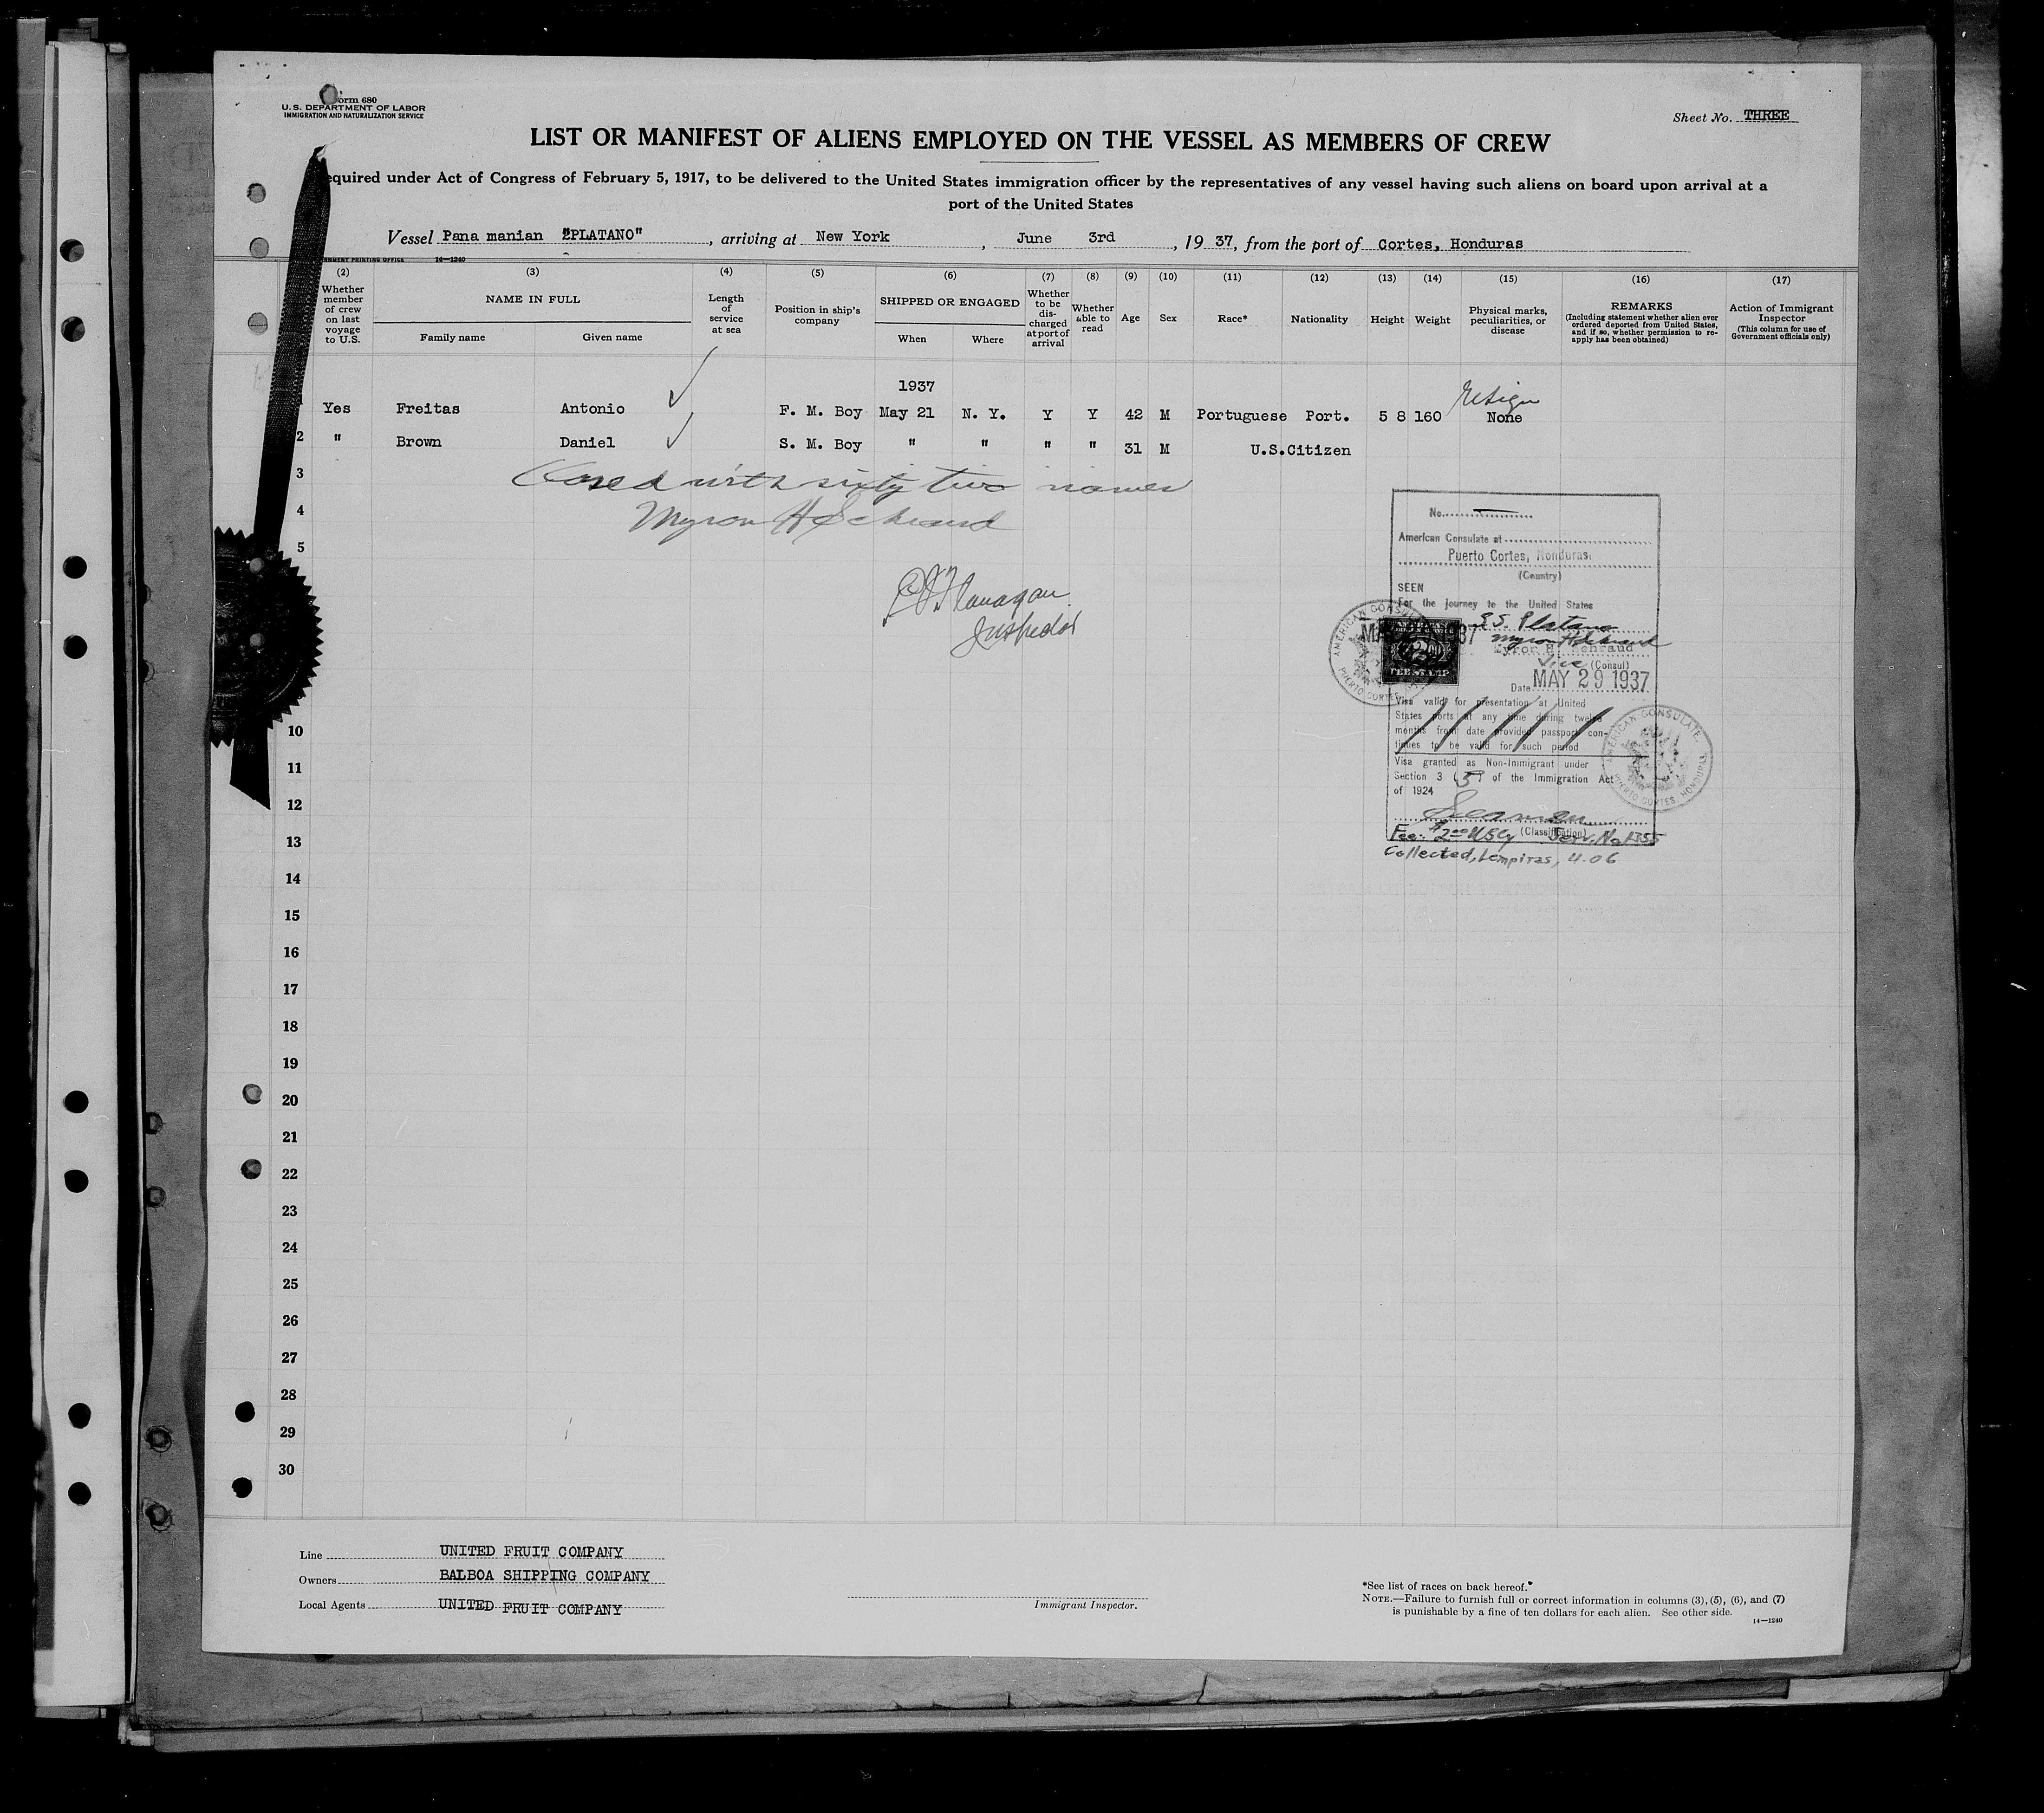 Form 680
U. S. DEPARTMENT OF LABOR
IMMIGRATION AND NATURALIZATION SERVICE
Sheet No. THREE
LIST OR MANIFEST OF ALIENS EMPLOYED ON THE VESSEL AS MEMBERS OF CREW
equired under Act of Congress of February 5, 1917, to be delivered to the United States immigration officer by the representatives of any vessel having such aliens on board upon arrival at a
port of the United States
Vessel Pana manian "PLATANO", arriving at New York, June 3rd, 1937, from the port of Cortes, Honduras
14—1240
(2) Whether member of crew on last voyage to U.S.
(3) NAME IN FULL
Family name Given name
(4) Length of service at sea
(5) Position in ship's company
(6) SHIPPED OR ENGAGED
When Where
(7) Whether to be discharged at port of arrival
(8) Whether able to read
(9) Age
(10) Sex
(11) Race*
(12) Nationality
(13) Height
(14) Weight
(15) Physical marks, peculiarities, or disease
(16) REMARKS
(Including statement whether alien ever ordered deported from United States, and if so, whether permission to re-apply has been obtained)
(17) Action of Immigrant Inspector
(This column for use of Government officials only)
1937
Yes Freitas Antonio F. M. Boy May 21 N. Y. Y Y 42 M Portuguese Port. 5 8 160 None
2 " Brown Daniel S. M. Boy " " " " 31 M U.S.Citizen
3
Closed with sixty two names
4
Myron H Schraud
5
Flanagan
Inspector
10
11
12
13
14
15
16
17
18
19
20
21
22
23
24
25
26
27
28
29
30
No.
American Consulate at
Puerto Cortes, Honduras.
(Country)
SEEN
For the journey to the United States
S.S. Platano
Myron H Schraud
Myron H. Schraud
Vice (Consul)
Date MAY 29 1937
Visa valid for presentation at United
States ports at any time during twelve
months from date provided passport con-
tinues to be valid for such period
Visa granted as Non-Inmigrant under
Section 3 (5) of the Immigration Act
of 1924
Seaman
(Classification)
Fee: $2.00 Serv. No 1355
Collected, Lempiras, 4.06
AMERICAN CONSULATE, PUERTO CORTES, HONDURAS
FEE STAMP
Line UNITED FRUIT COMPANY
Owners BALBOA SHIPPING COMPANY
Local Agents UNITED FRUIT COMPANY
Immigrant Inspector.
*See list of races on back hereof.
NOTE.—Failure to furnish full or correct information in columns (3), (5), (6), and (7)
is punishable by a fine of ten dollars for each alien. See other side.
14—1240